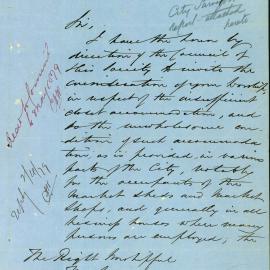 City Surveyor's
report attached
hereto
Sir,
I have the honor by
direction of the Council of
this Society to invite the
consideration of your Worship
in respect of the insufficient
closet accommodation, and
to the unwholesome con
dition of such accommoda
tion, as is provided, in various
parts of the City, notably
for the occupants of the
Market Sheds and Market
Shops, and generally in all
business houses where many
persons are employed; the
The Right Worshipful